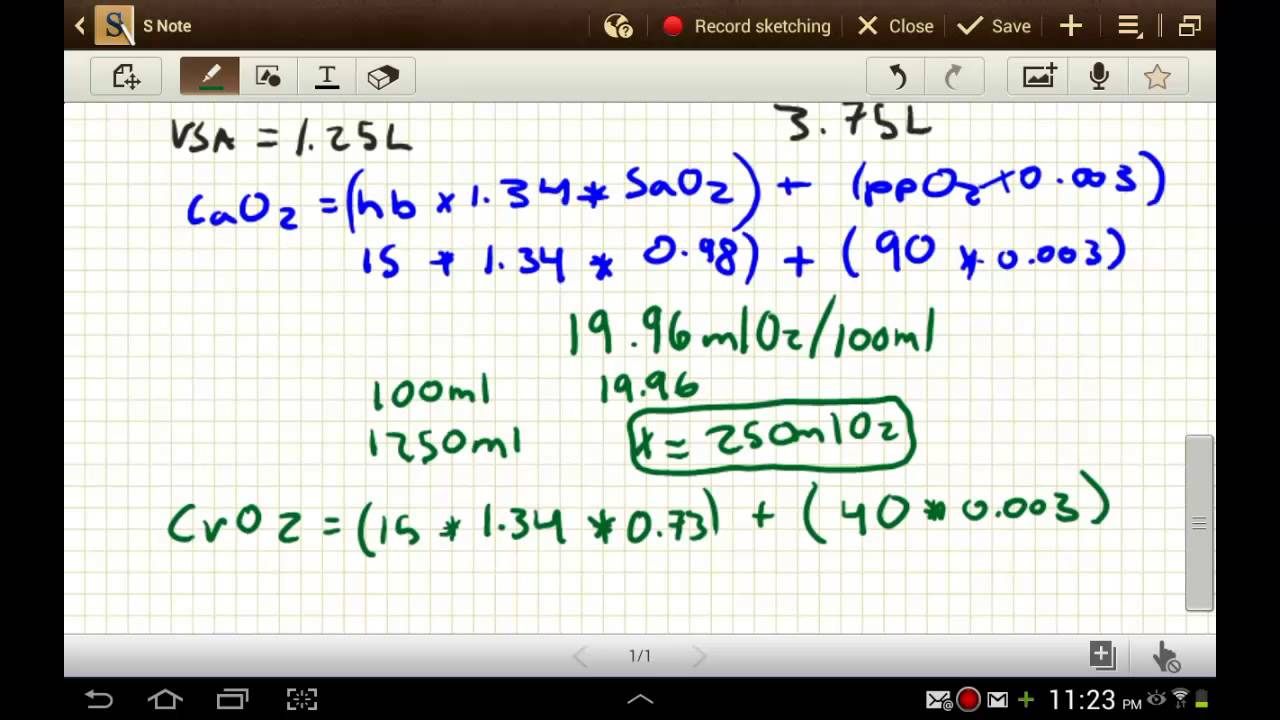 S Note
Record sketching Close Save
VSA = 1.25L 3.75L
CaO2 = (hb x 1.34 * SaO2) + (ppO2 x 0.003)
15 * 1.34 * 0.98) + (90 * 0.003)
19.96 mlO2/100ml
100ml 19.96
1250ml x = 250mlO2
CvO2 = (15 * 1.34 * 0.73) + (40 * 0.003)
1/1
11:23 PM